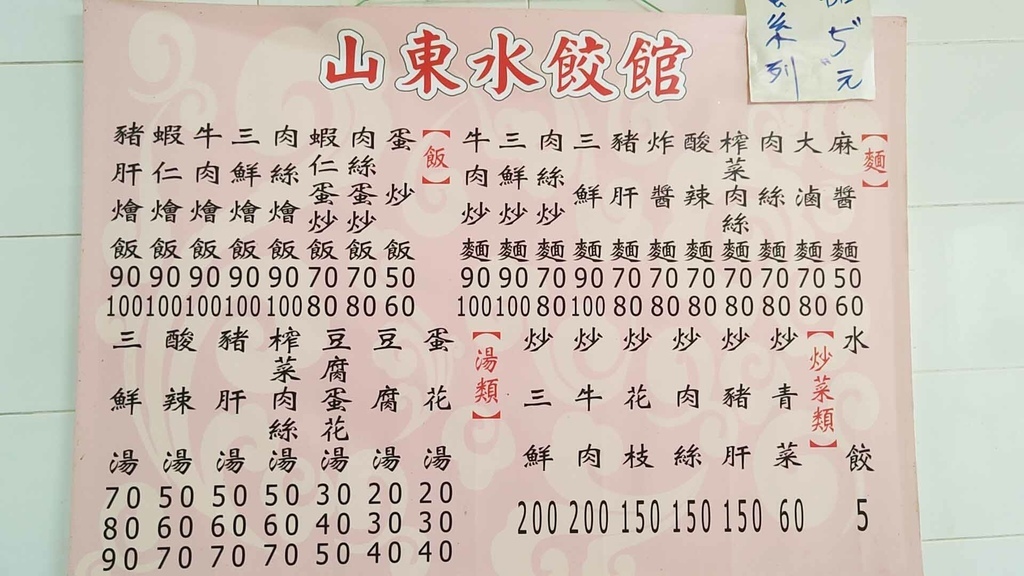 山東水餃館
系列
元
【麵】
麻醬麵 50 60
大滷麵 70 80
肉絲麵 70 80
榨菜肉絲麵 70 80
酸辣麵 70 80
炸醬麵 70 80
豬肝麵 70 80
三鮮麵 90 100
肉絲炒麵 70 80
三鮮炒麵 90 100
牛肉炒麵 90 100
【飯】
蛋炒飯 50 60
肉絲蛋炒飯 70 80
蝦仁蛋炒飯 70 80
肉絲燴飯 90 100
三鮮燴飯 90 100
牛肉燴飯 90 100
蝦仁燴飯 90 100
豬肝燴飯 90 100
水餃 5
【炒菜類】
炒青菜 60
炒豬肝 150
炒肉絲 150
炒花枝 150
炒牛肉 200
炒三鮮 200
【湯類】
蛋花湯 20 30 40
豆腐湯 20 30 40
豆腐蛋花湯 30 40 50
榨菜肉絲湯 50 60 70
豬肝湯 50 60 70
酸辣湯 50 60 70
三鮮湯 70 80 90